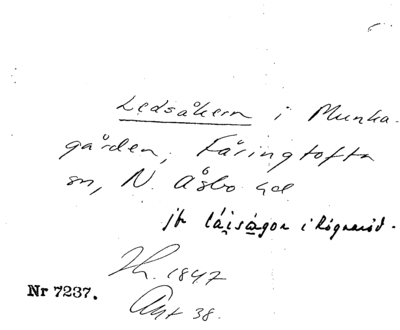 Ledsåkern i Munka-
gården, Färingtofta
sn, N. Åsbo hd
jfr láisågon i Rögnaröd.
1847
Nr 7237.
Ant 38.